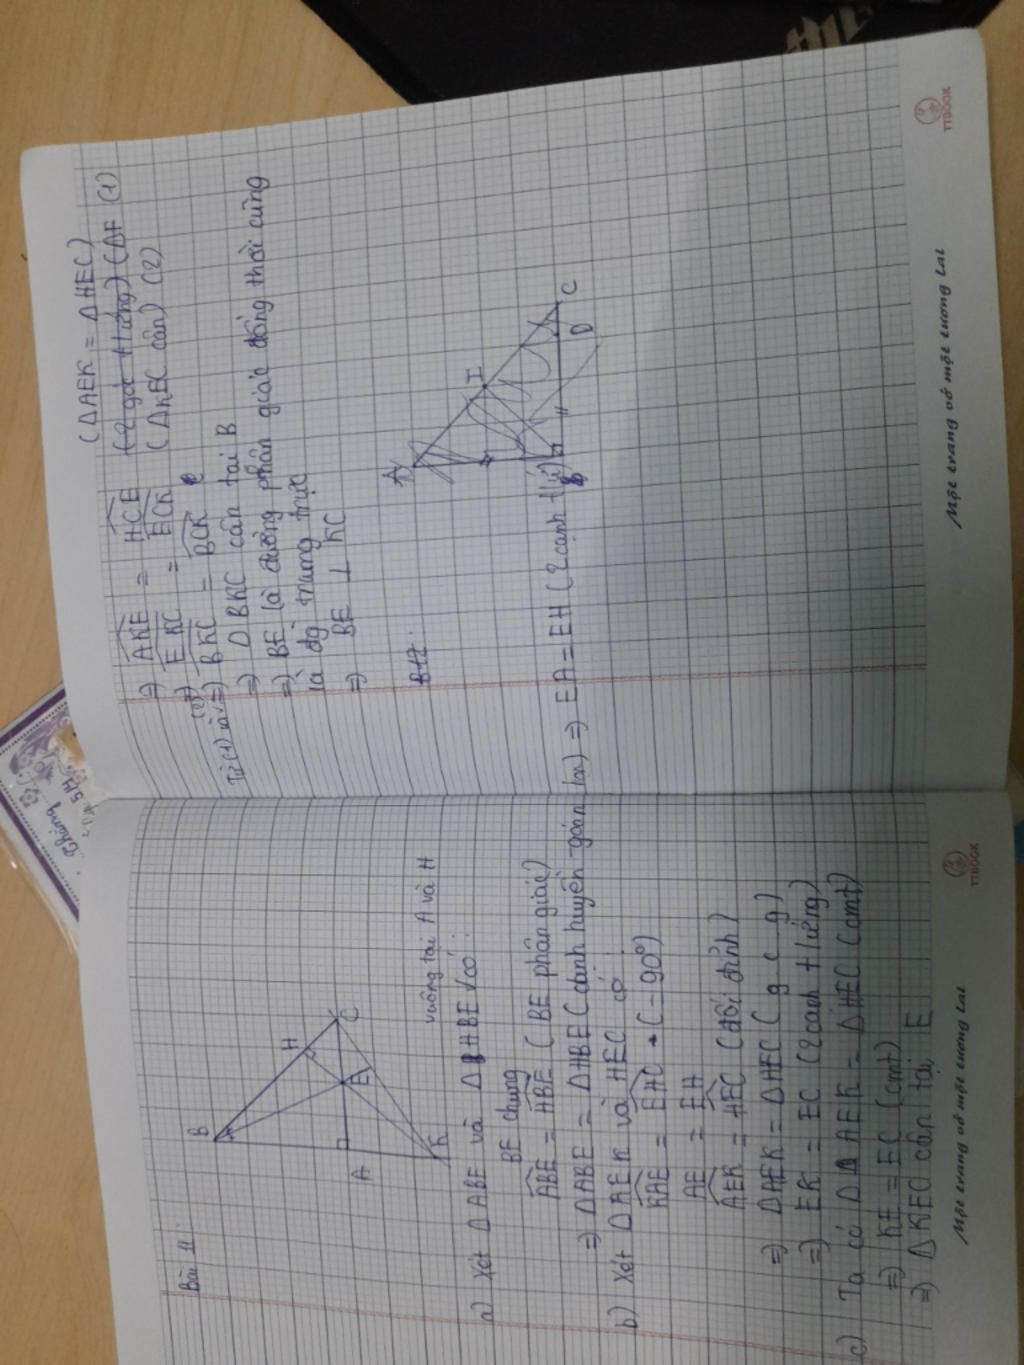 Bài 11:
B
H
A
E
C
K
vuông tại A và H
a) Xét ΔABE và ΔHBE có:
BE chung
ABE = HBE (BE phân giác)
=> ΔABE = ΔHBE (cạnh huyền - góc nhọn) => EA = EH (2 cạnh t/ứ)
b) Xét ΔAEK và HEC có:
KAE = EHC (= 90°)
AE = EH
AEK = HEC (đối đỉnh)
=> ΔAEK = ΔHEC (g c g)
=> EK = EC (2 cạnh tương ứng)
c) Ta có ΔAEK = ΔHEC (cmt)
=> KE = EC (cmt)
=> ΔKEC cân tại E
Một trang vở một tương lai
TTBOOK
=> AKE = HCE (ΔAEK = ΔHEC)
=> EKC = ECK (ΔKEC cân) (2)
(1)
Từ (1) và (2) => BKC = BCK
=> ΔBKC cân tại B
=> BE là đường phân giác đồng thời cũng
là đg trung trực
=> BE ⊥ KC
B12:
A
I
B
D
C
Một trang vở một tương lai
TTBOOK
Chúng